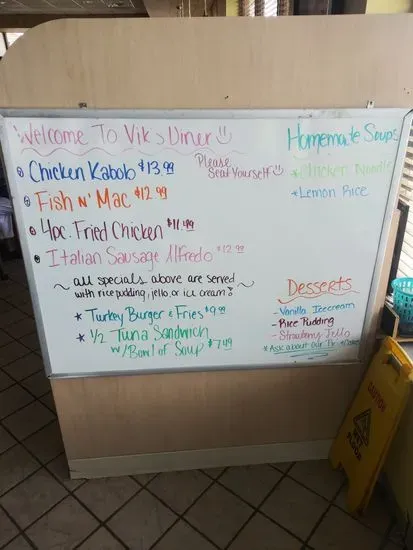 Welcome To Vik's Diner
Please
Seat Yourself
Chicken Kabob $13.99
Fish N' Mac $12.99
4pc. Fried Chicken $11.49
Italian Sausage Alfredo $12.99
~ all specials above are served ~
with rice pudding, jello, or ice cream
* Turkey Burger & Fries $9.99
* 1/2 Tuna Sandwich
w/ Bowl of Soup $7.49
Homemade Soups
* Chicken Noodle
* Lemon Rice
Desserts
- Vanilla Icecream
- Rice Pudding
- Strawberry Jello
* Ask about our
CAUTION
WET
FLOOR